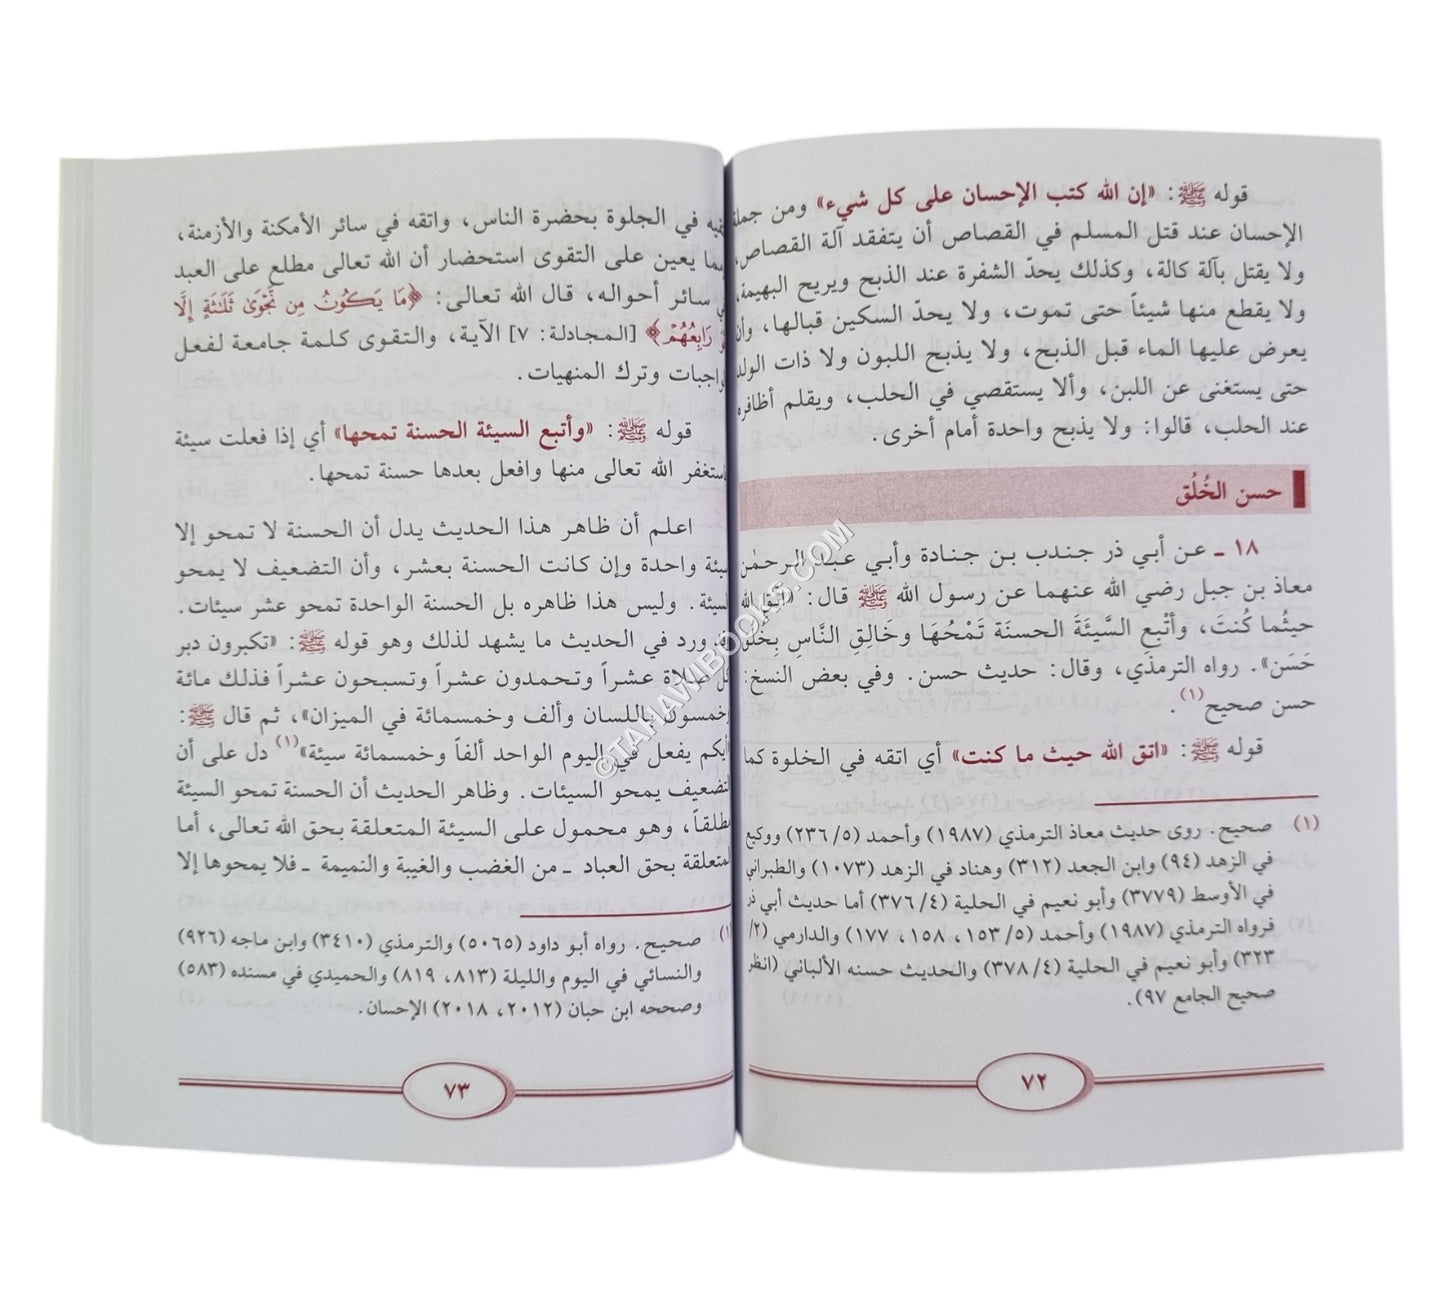 قوله ﷺ: «إن الله كتب الإحسان على كل شيء» ومن جملة
الإحسان عند قتل المسلم في القصاص أن يتفقد آلة القصاص،
ولا يقتل بآلة كالة، وكذلك يحدّ الشفرة عند الذبح ويريح البهيمة،
ولا يقطع منها شيئاً حتى تموت، ولا يحدّ السكين قبالها، وأن
يعرض عليها الماء قبل الذبح، ولا يذبح اللبون ولا ذات الولد
حتى يستغنى عن اللبن، وألا يستقصي في الحلب، ويقلم أظافره
عند الحلب، قالوا: ولا يذبح واحدة أمام أخرى.
حسن الخُلُق
١٨ ـ عن أبي ذر جندب بن جنادة وأبي عبد الرحمٰن
معاذ بن جبل رضي الله عنهما عن رسول الله ﷺ قال: «اتَّقِ الله
حيثُما كُنتَ، وأتْبِعِ السَّيئَةَ الحسنَة تَمْحُهَا وخَالِقِ النَّاسِ بِخُلُقٍ
حَسَن». رواه الترمذي، وقال: حديث حسن. وفي بعض النسخ:
حسن صحيح(١).
قوله ﷺ: «اتق الله حيث ما كنت» أي اتقه في الخلوة كما
(١) صحيح. روى حديث معاذ الترمذي (١٩٨٧) وأحمد (٥/ ٢٣٦) ووكيع
في الزهد (٩٤) وابن الجعد (٣١٢) وهناد في الزهد (١٠٧٣) والطبراني
في الأوسط (٣٧٧٩) وأبو نعيم في الحلية (٤/ ٣٧٦) أما حديث أبي ذر
فرواه الترمذي (١٩٨٧) وأحمد (٥/ ١٥٣، ١٥٨، ١٧٧) والدارمي (٢/
٣٢٣) وأبو نعيم في الحلية (٤/ ٣٧٨) والحديث حسنه الألباني (انظر
صحيح الجامع ٩٧).
٧٢
في الجلوة بحضرة الناس، واتقه في سائر الأمكنة والأزمنة،
يعين على التقوى استحضار أن الله تعالى مطلع على العبد
سائر أحواله، قال الله تعالى: ﴿مَا يَكُونُ مِن نَّجْوَىٰ ثَلَٰثَةٍ إِلَّا
رَابِعُهُمْ﴾ [المجادلة: ٧] الآية، والتقوى كلمة جامعة لفعل
واجبات وترك المنهيات.
قوله ﷺ: «وأتبع السيئة الحسنة تمحها» أي إذا فعلت سيئة
استغفر الله تعالى منها وافعل بعدها حسنة تمحها.
اعلم أن ظاهر هذا الحديث يدل أن الحسنة لا تمحو إلا
سيئة واحدة وإن كانت الحسنة بعشر، وأن التضعيف لا يمحو
السيئة. وليس هذا ظاهره بل الحسنة الواحدة تمحو عشر سيئات.
ورد في الحديث ما يشهد لذلك وهو قوله ﷺ: «تكبرون دبر
كل صلاة عشراً وتحمدون عشراً وتسبحون عشراً فذلك مائة
وخمسون باللسان وألف وخمسمائة في الميزان»، ثم قال ﷺ:
«أيكم يفعل في اليوم الواحد ألفاً وخمسمائة سيئة»(١) دل على أن
التضعيف يمحو السيئات. وظاهر الحديث أن الحسنة تمحو السيئة
مطلقاً، وهو محمول على السيئة المتعلقة بحق الله تعالى، أما
المتعلقة بحق العباد ـ من الغضب والغيبة والنميمة ـ فلا يمحوها إلا
(١) صحيح. رواه أبو داود (٥٠٦٥) والترمذي (٣٤١٠) وابن ماجه (٩٢٦)
والنسائي في اليوم والليلة (٨١٣، ٨١٩) والحميدي في مسنده (٥٨٣)
وصححه ابن حبان (٢٠١٢، ٢٠١٨) الإحسان.
٧٣
©TAHAWIBOOKS.COM